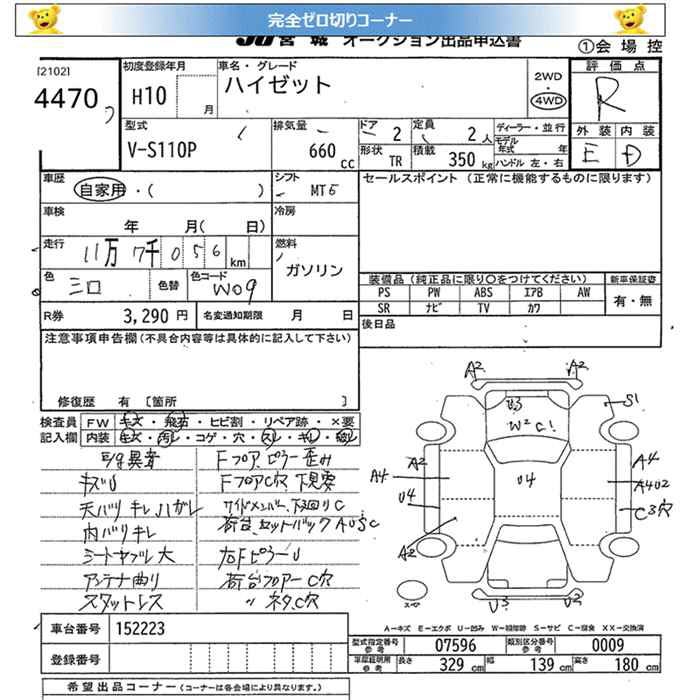 完全ゼロ切りコーナー
JU宮城 オークション出品申込書
①会場控
[2102]
4470
初度登録年月 H10 月
車名・グレード ハイゼット
2WD
4WD
評価点 R
外装 E 内装 D
型式 V-S110P
排気量 660 cc
ドア 2
形状 TR
定員 2人
積載 350 kg
ディーラー・並行
モデル年式 年
ハンドル 左・右
車歴 自家用・( )
シフト MT5
セールスポイント (正常に機能するものに限ります)
車検 年 月( 日)
冷房
走行 11万7千056 km
燃料 ガソリン
色 シロ 色替
色コード W09
装備品(純正品に限り○をつけてください)
新車保証書
PS PW ABS エアB AW
SR ナビ TV カワ
有・無
R券 3,290円
名変通知期限 月 日
後日品
注意事項申告欄(不具合内容等は具体的に記入して下さい)
修復歴 有 [箇所 ]
検査員記入欄
FW キズ・飛石・ヒビ割・リペア跡・×要
内装 キズ・汚レ・コゲ・穴・スレ・キレ・破レ
E/g異音 Fフロア、ピラー歪み
キズU Fフロア穴、下見要
天バリキレハガレ サイドメンバー、下回りC
内バリキレ 荷台、セットバックAUSC
シートヤブレ大 右FピラーU
アンテナ曲り 荷台フロアーC穴
スタットレス 〃 ネタC穴
A2 A2
U3 S1
W2C!
A2 A4
A4 U4 A4U2
U4 C3穴
A2
U3 U3
A－キズ E－エクボ U－凹み W－補修跡 S－サビ C－腐食 XX－交換済
車台番号 152223
登録番号
型式指定番号参考 07596
類別区分番号参考 0009
車庫証明用参考 長さ 329 cm 幅 139 cm 高さ 180 cm
希望出品コーナー(コーナーは各会場により異なります。)